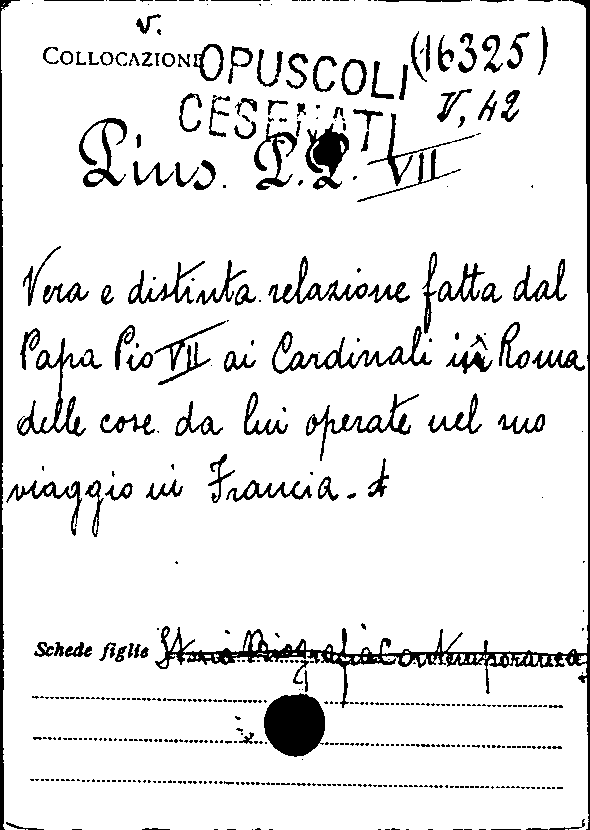 v.
COLLOCAZIONE OPUSCOLI (16325)
CESENATI V, 42
Pius. P.P. VII
Vera e distinta relazione fatta dal
Papa Pio VII ai Cardinali in Roma
delle cose da lui operate nel suo
viaggio in Francia.
Schede figlie Storia Biografia Contemporanea